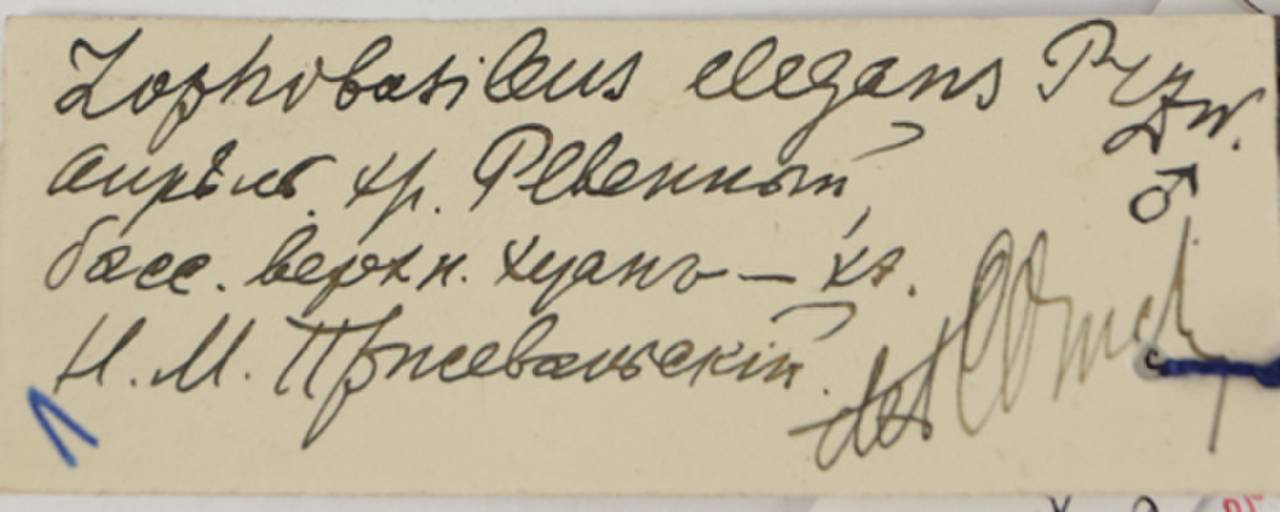 Lophobasileus elegans Przw.
♂
апрѣль. хр. Ревенный,
басс. верхн. Хуанъ – хэ.
Н. М. Пржевальскій.
det
1